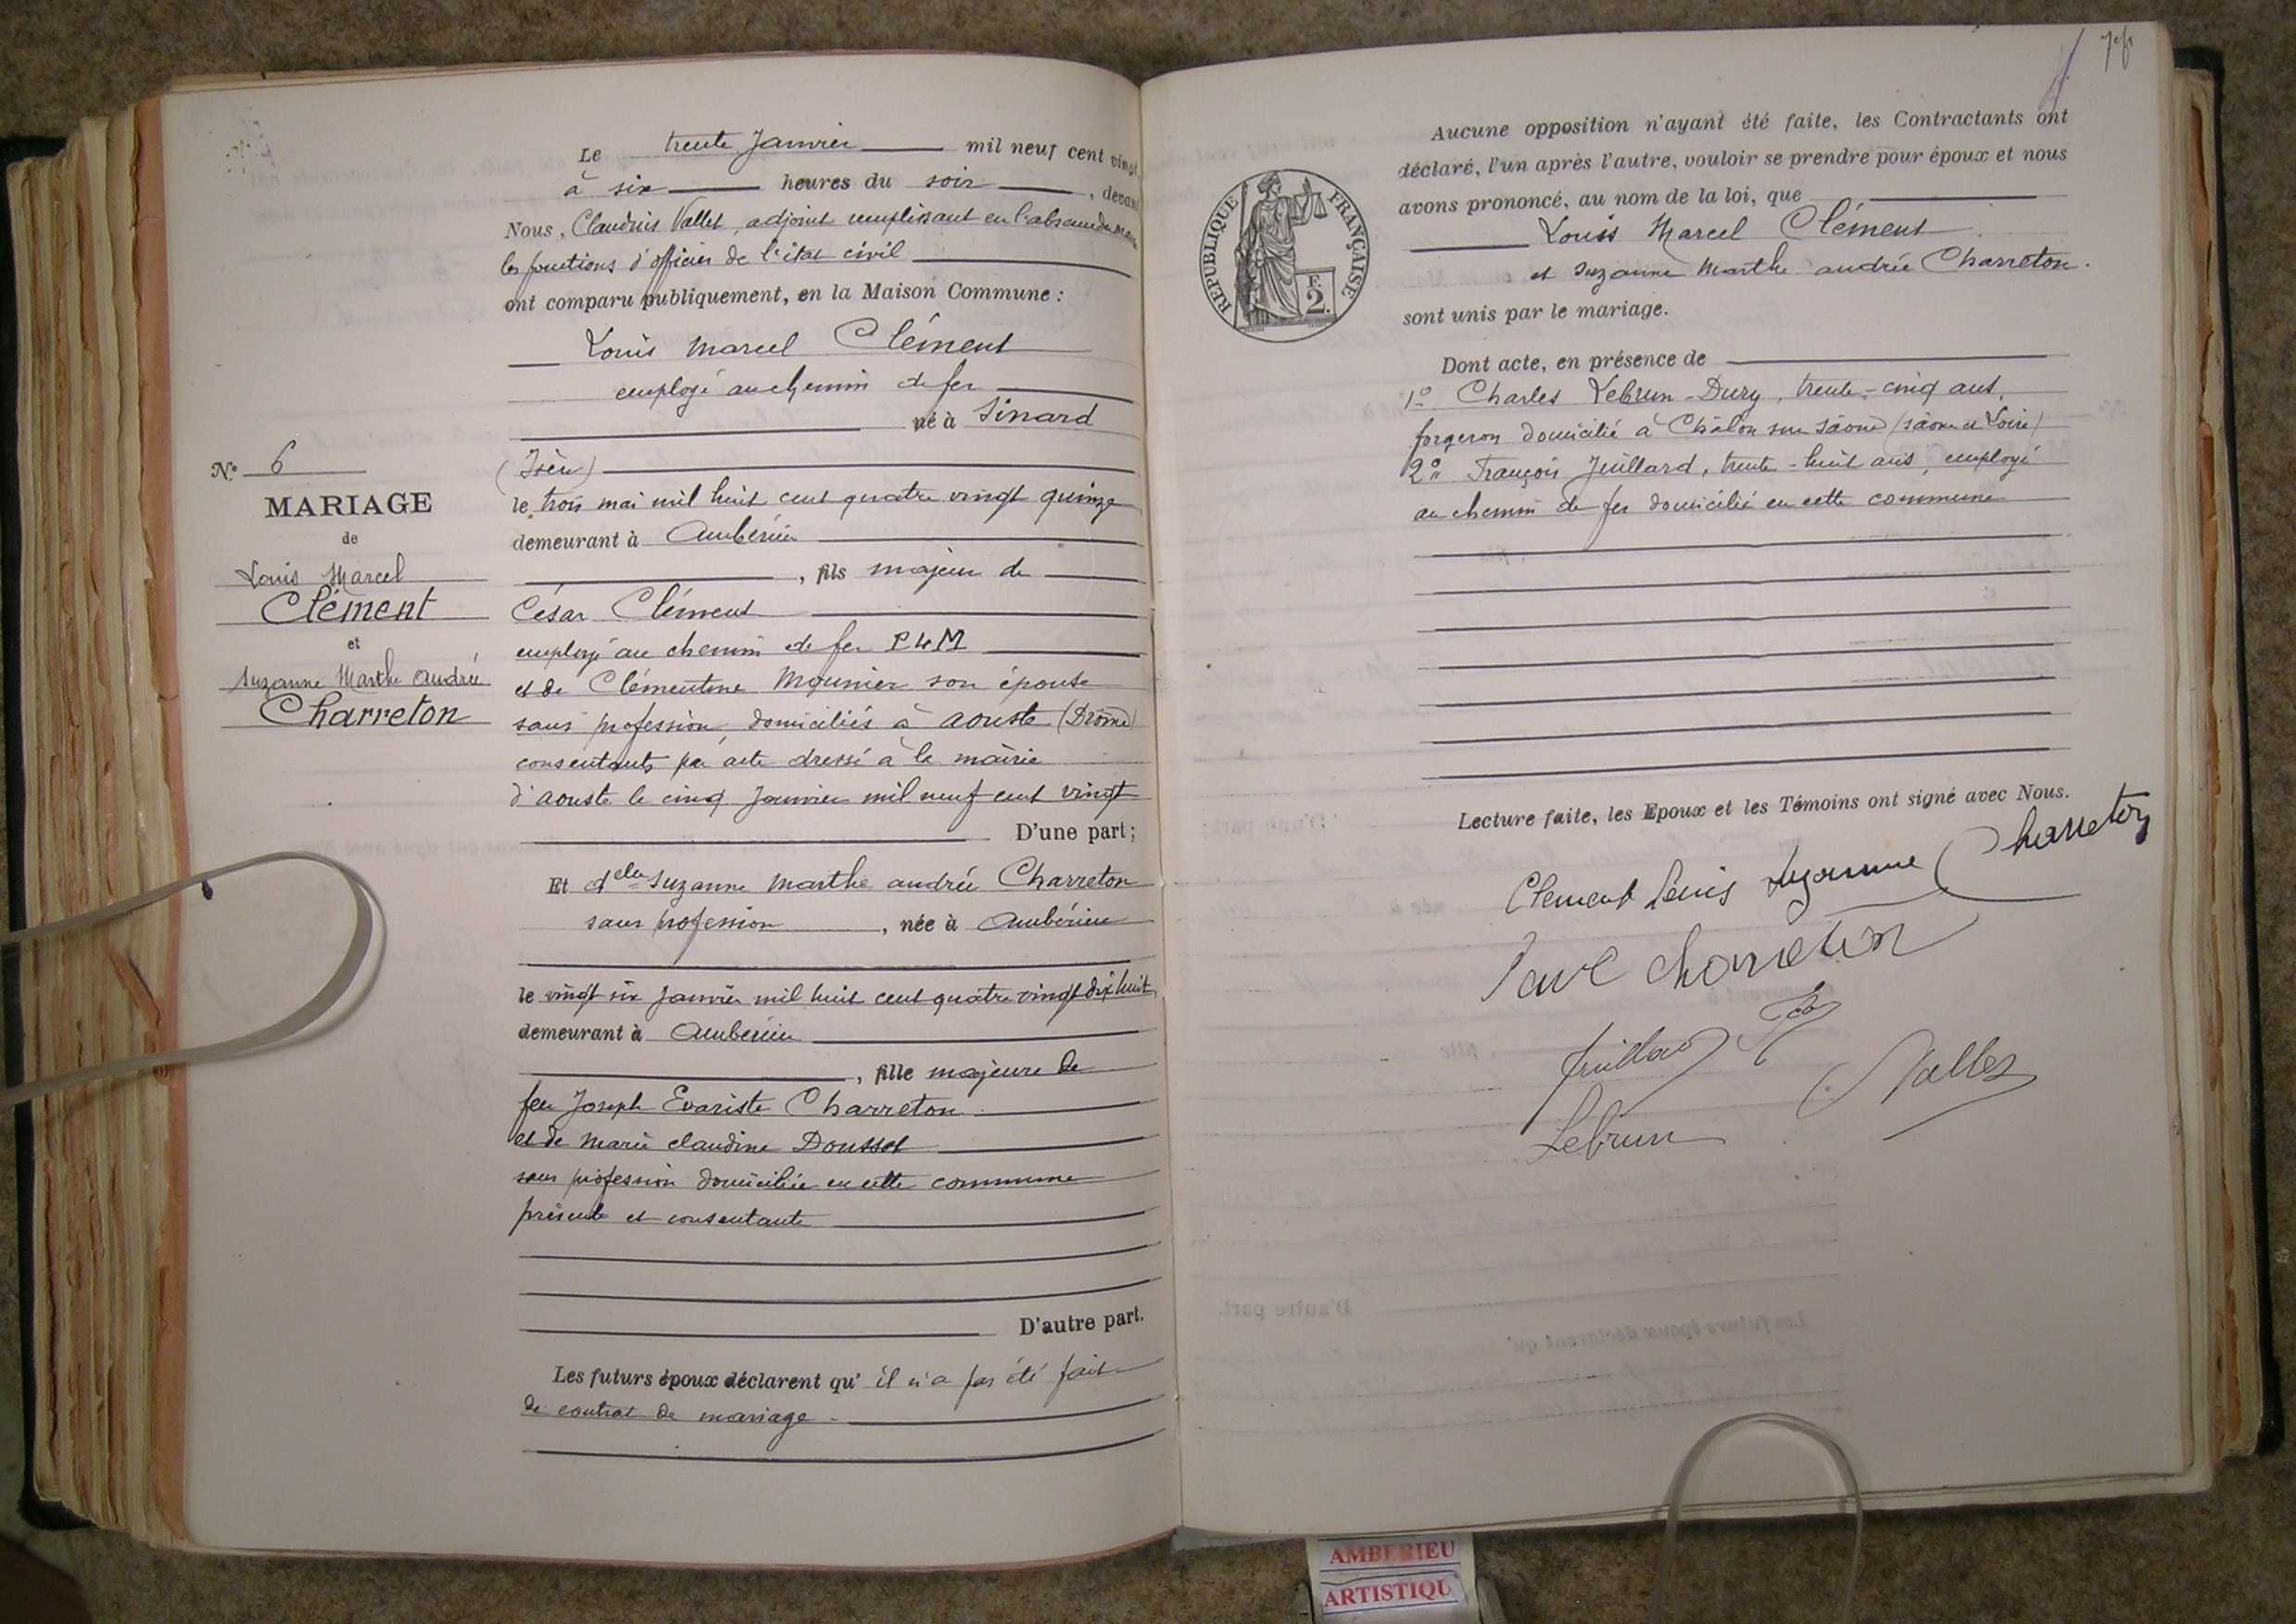 Le trente Janvier mil neuf cent vingt
à six heures du soir, devant
Nous, Claudius Vallet, adjoint remplissant en l'absence du Maire
les fonctions d'officier de l'état civil
ont comparu publiquement, en la Maison Commune :
Louis Marcel Clément
employé au chemin de fer
né à Sinard
(Isère)
le trois mai mil huit cent quatre vingt quinze
demeurant à Ambérieu
, fils majeur de
César Clément
employé au chemin de fer PLM
et de Clémentine Mounier son épouse
sans profession, domiciliés à Aouste (Drôme)
consentants par acte dressé à la mairie
d'Aouste le cinq Janvier mil neuf cent vingt
D'une part;
Et delle Suzanne Marthe Andrée Charreton
sans profession, née à Ambérieu
le vingt six Janvier mil huit cent quatre vingt dix huit
demeurant à Ambérieu
, fille majeure de
feu Joseph Evariste Charreton
et de Marie Claudine Dousset
sans profession domiciliée en cette commune
présente et consentante
D'autre part.
Les futurs époux déclarent qu'il n'a pas été fait
de contrat de mariage.
N° 6
MARIAGE
de
Louis Marcel
Clément
et
Suzanne Marthe Andrée
Charreton
Aucune opposition n'ayant été faite, les Contractants ont
déclaré, l'un après l'autre, vouloir se prendre pour époux et nous
avons prononcé, au nom de la loi, que
Louis Marcel Clément
et Suzanne Marthe Andrée Charreton.
sont unis par le mariage.
RÉPUBLIQUE FRANÇAISE
F.
2.
Dont acte, en présence de
1° Charles Lebrun-Dury, trente-cinq ans,
forgeron domicilié à Châlon sur Saône (Saône et Loire)
2° François Juillard, trente-huit ans, employé
au chemin de fer domicilié en cette commune
Lecture faite, les Epoux et les Témoins ont signé avec Nous.
Clement Louis Suzanne Charreton
Paul Charreton
Juillard
Vallet
Lebrun
AMBERIEU
ARTISTIQU